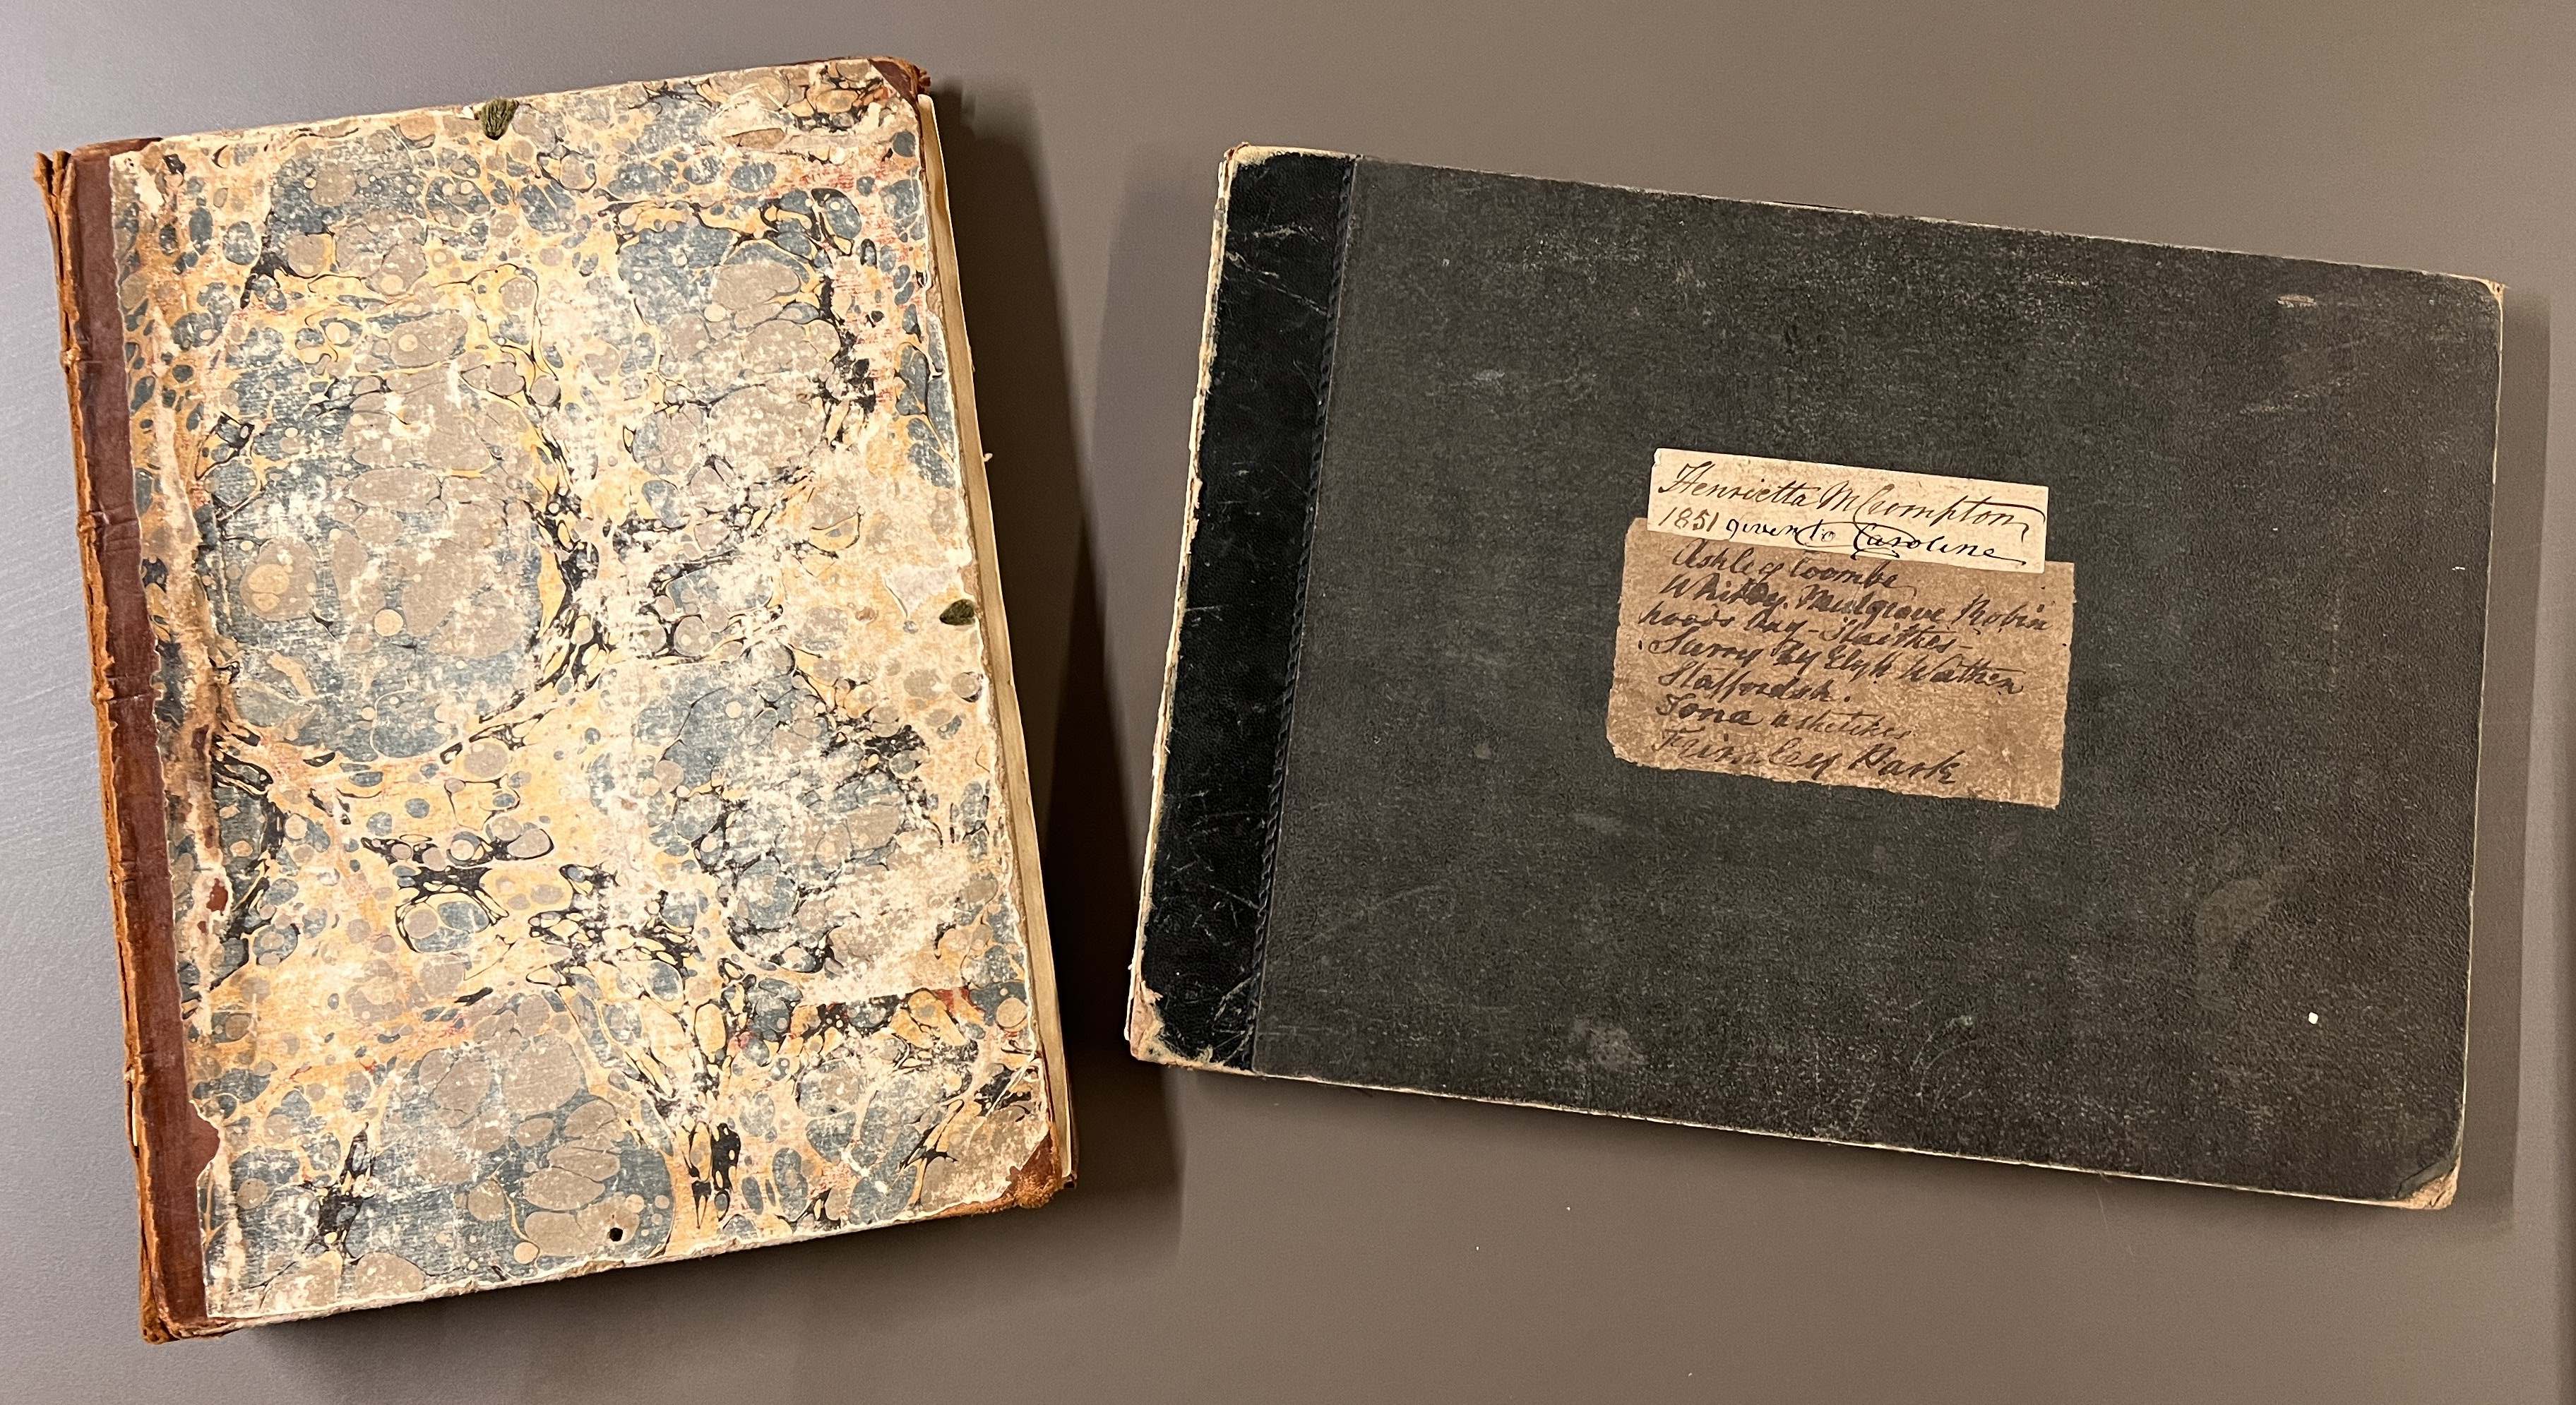 Henrietta M Crompton
1851 given to Caroline
Ashley Coombe
Whitby. Mulgrave Robin
hoods Bay - Staithes -
Surrey by Elizh Wathen
Staffordsh.
Iona sketches
Frimley Park